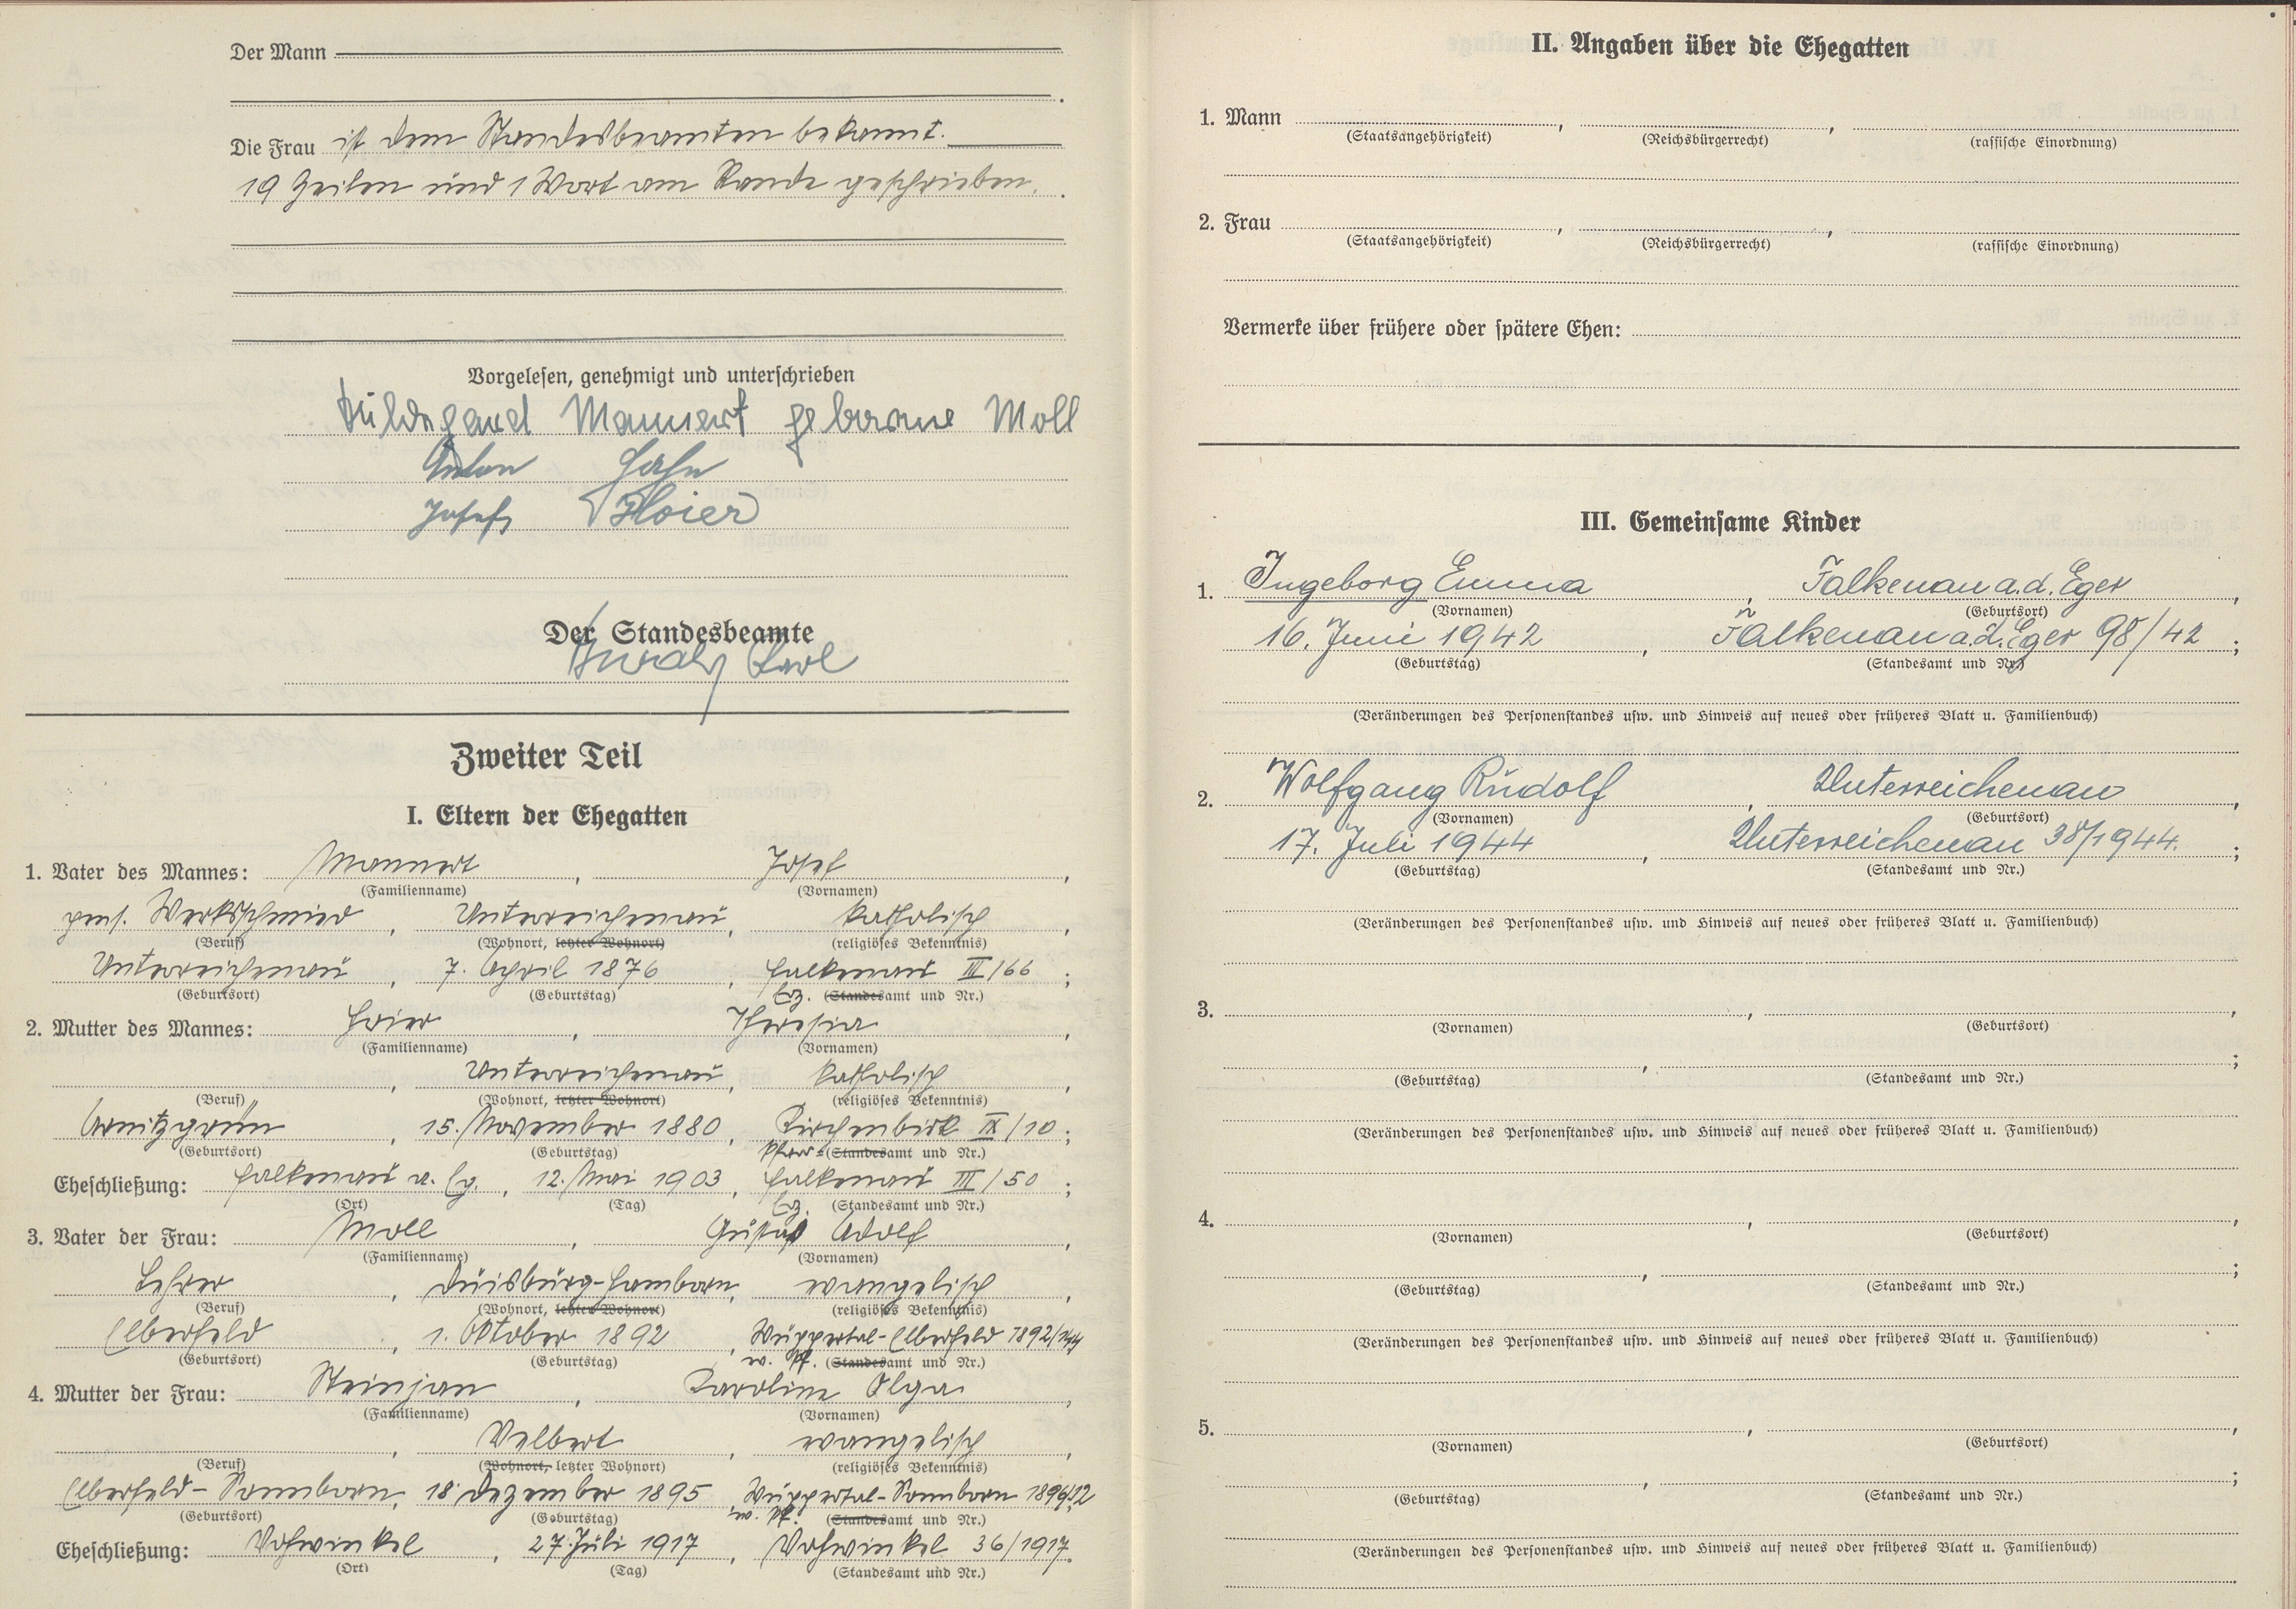 Der Mann
Die Frau ist dem Standesbeamten bekannt.
19 Zeilen und 1 Wort am Rande geschrieben.
Vorgelesen, genehmigt und unterschrieben
Hildegard Mannert geborene Moll
Anton Hahn
Josef Hoier
Der Standesbeamte
Karl
Zweiter Teil
I. Eltern der Ehegatten
1. Vater des Mannes: Mannert, Josef,
(Familienname) (Vornamen)
pens. Werksschmied, Unterreichenau, katholisch,
(Beruf) (Wohnort, letzter Wohnort) (religiöses Bekenntnis)
Unterreichenau, 7. April 1876, Falkenau III/66;
(Geburtsort) (Geburtstag) Erz. (Standesamt und Nr.)
2. Mutter des Mannes: Hoier, Theresia,
(Familienname) (Vornamen)
, Unterreichenau, katholisch,
(Beruf) (Wohnort, letzter Wohnort) (religiöses Bekenntnis)
Arnitzgrün, 15. November 1880, Kirchenbirk IX/10;
(Geburtsort) (Geburtstag) Pfarr-(Standesamt und Nr.)
Eheschließung: Falkenau a. Eg., 12. Mai 1903, Falkenau III/50;
(Ort) (Tag) Erz. (Standesamt und Nr.)
3. Vater der Frau: Moll, Gustav Adolf,
(Familienname) (Vornamen)
Lehrer, Duisburg-Hamborn, evangelisch,
(Beruf) (Wohnort, letzter Wohnort) (religiöses Bekenntnis)
Elberfeld, 1. Oktober 1892, Wuppertal-Elberfeld 1892/
(Geburtsort) (Geburtstag) ev. Pf. (Standesamt und Nr.)
4. Mutter der Frau: Steinjan, Karoline Olga,
(Familienname) (Vornamen)
, Velbert, evangelisch,
(Beruf) (Wohnort, letzter Wohnort) (religiöses Bekenntnis)
Elberfeld-Sonnborn, 18. Dezember 1895, Wuppertal-Sonnborn
(Geburtsort) (Geburtstag) ev. Pf. (Standesamt und Nr.)
Eheschließung: Vohwinkel, 27. Juli 1917, Vohwinkel 36/1917.
(Ort) (Tag) (Standesamt und Nr.)
II. Angaben über die Ehegatten
1. Mann , ,
(Staatsangehörigkeit) (Reichsbürgerrecht) (rassische Einordnung)
2. Frau , ,
(Staatsangehörigkeit) (Reichsbürgerrecht) (rassische Einordnung)
Vermerke über frühere oder spätere Ehen:
III. Gemeinsame Kinder
1. Ingeborg Emma, Falkenau a.d. Eger,
(Vornamen) (Geburtsort)
16. Juni 1942, Falkenau a.d. Eger 98/42;
(Geburtstag) (Standesamt und Nr.)
(Veränderungen des Personenstandes usw. und Hinweis auf neues oder früheres Blatt u. Familienbuch)
2. Wolfgang Rudolf, Unterreichenau,
(Vornamen) (Geburtsort)
17. Juli 1944, Unterreichenau 38/1944.;
(Geburtstag) (Standesamt und Nr.)
(Veränderungen des Personenstandes usw. und Hinweis auf neues oder früheres Blatt u. Familienbuch)
3. , ,
(Vornamen) (Geburtsort)
, ;
(Geburtstag) (Standesamt und Nr.)
(Veränderungen des Personenstandes usw. und Hinweis auf neues oder früheres Blatt u. Familienbuch)
4. , ,
(Vornamen) (Geburtsort)
, ;
(Geburtstag) (Standesamt und Nr.)
(Veränderungen des Personenstandes usw. und Hinweis auf neues oder früheres Blatt u. Familienbuch)
5. , ,
(Vornamen) (Geburtsort)
, ;
(Geburtstag) (Standesamt und Nr.)
(Veränderungen des Personenstandes usw. und Hinweis auf neues oder früheres Blatt u. Familienbuch)